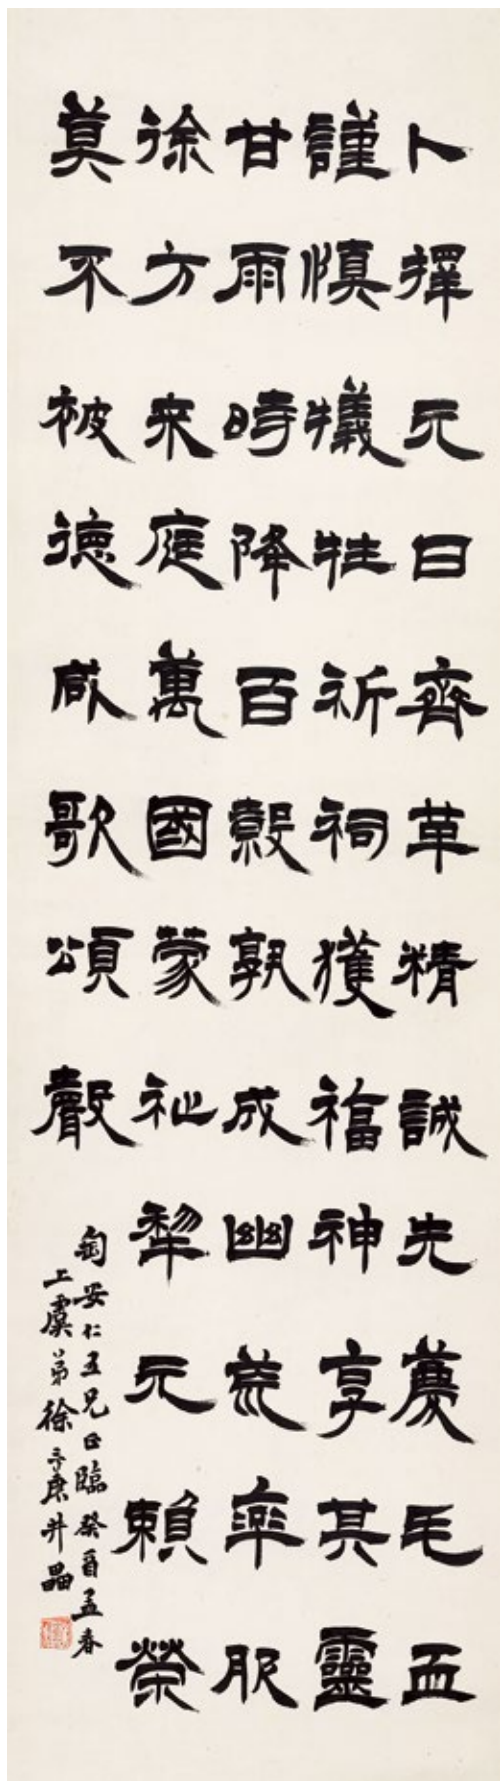 卜擇元日齊革精誠先薦毛血
謹慎犧牲祈祠獲福神享其靈
甘雨時降百穀孰成幽荒率服
徐方来庭萬國蒙祉犂元賴榮
莫不被德咸歌頌聲
匋安仁五兄正臨癸酉孟春
上虞弟徐三庚井罍